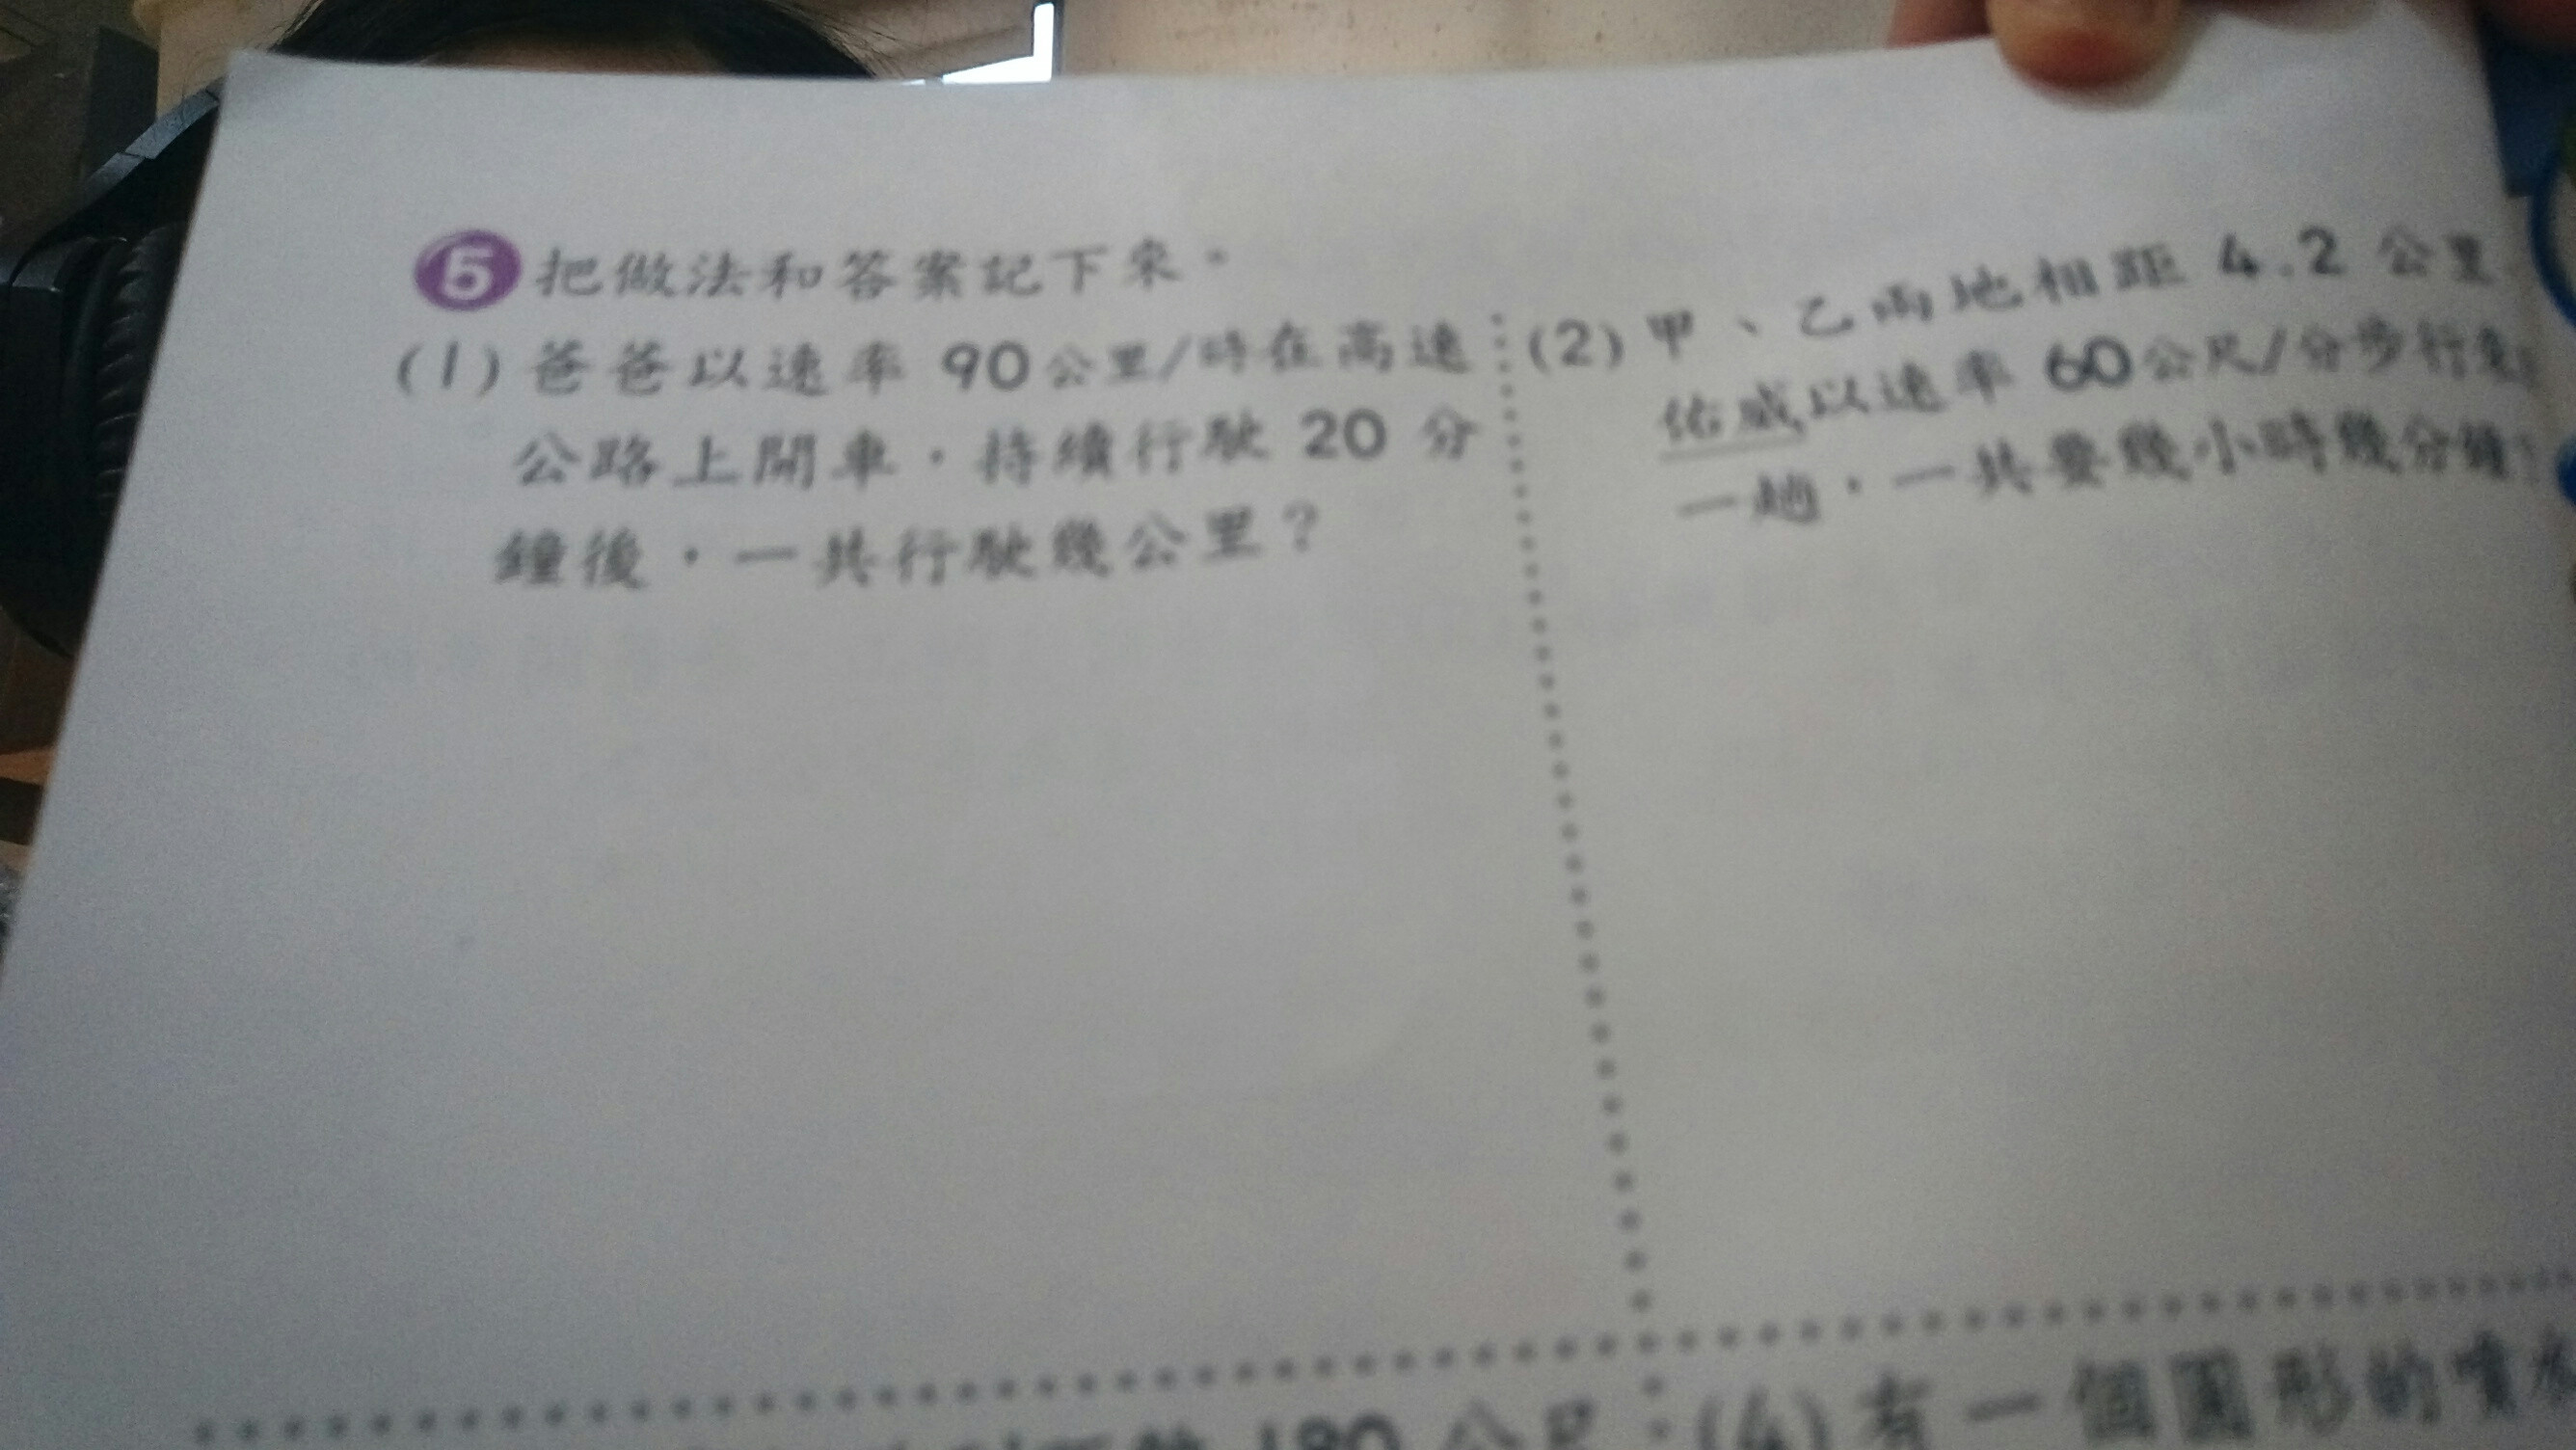 5 把做法和答案記下來。
(1) 爸爸以速率 90公里/時在高速
公路上開車，持續行駛 20 分
鐘後，一共行駛幾公里？
(2) 甲、乙兩地相距 4.2 公里
佑威以速率 60公尺/分步行
一趟，一共要幾小時幾分鐘
180 公尺
(4) 有一個圓形的噴水